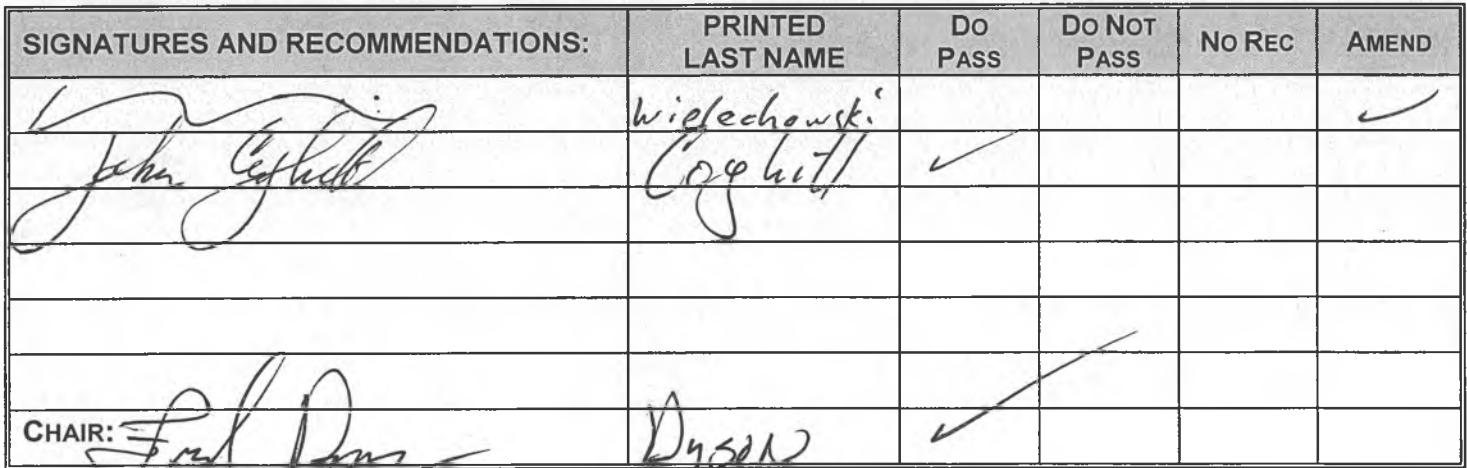 SIGNATURES AND RECOMMENDATIONS: PRINTED LAST NAME DO PASS DO NOT PASS NO REC AMEND
Wielechowski ✓
John Coghill Coghill ✓
CHAIR: Fred Dyson Dyson ✓